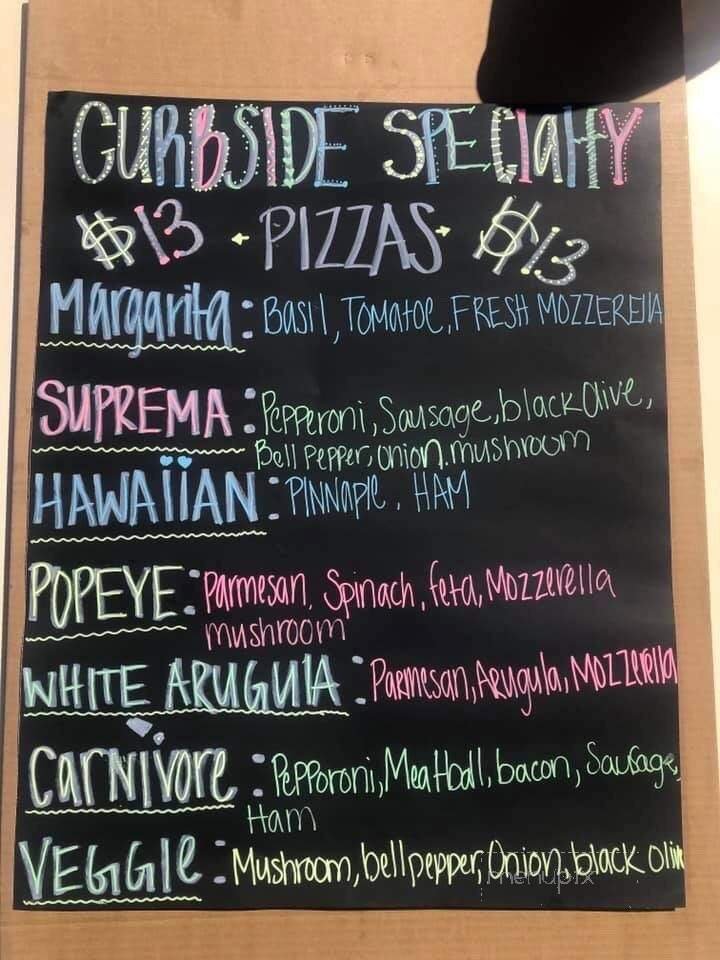 CURBSIDE SPECIALTY
$13 · PIZZAS · $13
Margarita: Basil, Tomatoe, FRESH MOZZERELLA
SUPREMA: Pepperoni, Sausage, black Olive,
Bell Pepper, onion, mushroom
HAWAIIAN: PINNAPLE, HAM
POPEYE: Parmesan, Spinach, feta, Mozzerella
mushroom
WHITE ARUGULA: Parmesan, Arugula, Mozzerella
Carnivore: Pepporoni, Meatball, bacon, Sausage,
Ham
VEGGIE: Mushroom, bell pepper, Onion, black oliv
menupix